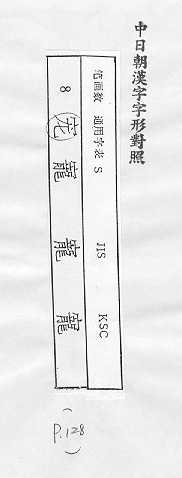 中日朝漢字字形對照
笔画数 通用字表 S JIS KSC
8 宠 寵 寵 寵
(P.128)